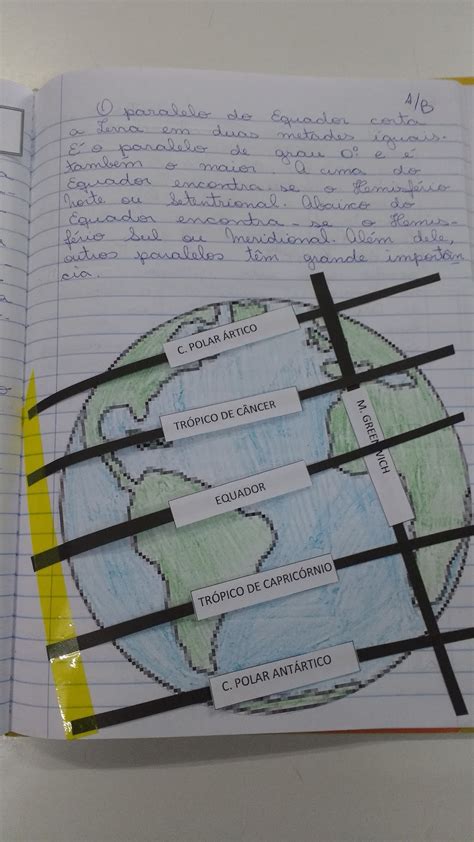 A/B
O paralelo do Equador corta
a Terra em duas metades iguais.
É o paralelo de grau 0° e é
também o maior. A cima do
Equador encontra-se o Hemisfério
Norte ou Setentrional. Abaixo do
Equador encontra-se o Hemis-
fério Sul ou Meridional. Além dele,
outros paralelos têm grande importân
cia.
C. POLAR ÁRTICO
TRÓPICO DE CÂNCER
M. GREENWICH
EQUADOR
TRÓPICO DE CAPRICÓRNIO
C. POLAR ANTÁRTICO